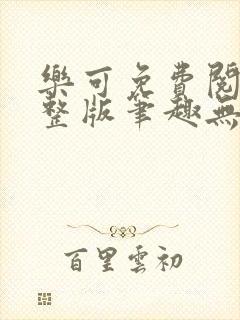 樂可免費閱
整版筆趣無
百里雲初